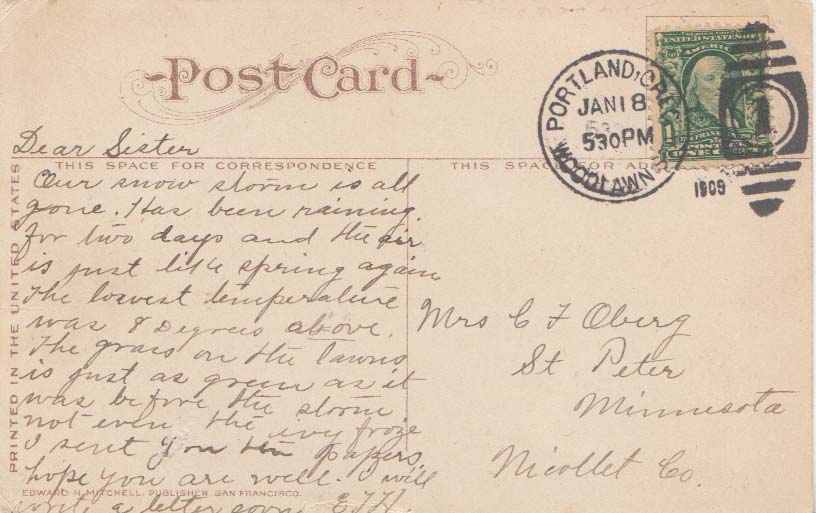 Post Card
PORTLAND, ORE.
JAN 18
530PM
WOODLAWN
1909
SERIES 1902
UNITED STATES OF
AMERICA
FRANKLIN
1
1
Dear Sister
THIS SPACE FOR CORRESPONDENCE
THIS SPACE FOR ADD
PRINTED IN THE UNITED STATES
Our snow storm is all
gone. Has been raining
for two days and the air
is just like spring again
The lowest temperature
was 8 Degrees above.
The grass on the lawns
is just as green as it
was before the storm
not even the ivy froze
I sent you the papers
hope you are well. I will
EDWARD H. MITCHELL, PUBLISHER, SAN FRANCISCO.
write a letter soon E.J.H.
Mrs C F Oberg
St Peter
Minnesota
Nicollet Co.